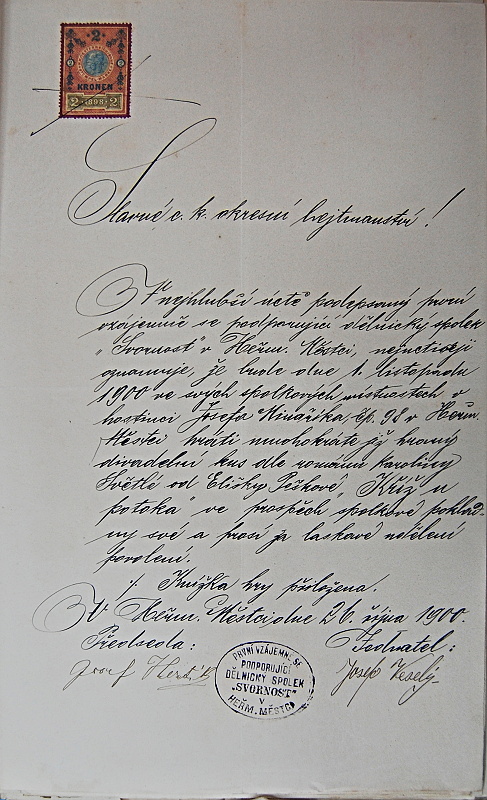 2
KRONEN
2 1898 2
Slavné c. k. okresní hejtmanství!
V nejhlubší úctě podepsaný první
vzájemně se podporující dělnický spolek
„Svornost" v Heřm. Městci, nejuctivěji
oznamuje, že bude dne 1. listopadu
1900 ve svých spolkových místnostech v
hostinci Josefa čp. 98 v Heřm.
Městci hráti mnohokráte již hraný
divadelní kus dle románu Karoliny
Světlé od Elišky Peškové, „Kříž u
potoka" ve prospěch spolkové poklad-
ny své a prosí za laskavé udělení
povolení.
Knížka hry přiložena.
V Heřm. Městci dne 26. října 1900.
Předseda: Jednatel:
Josef Josef Veselý
PRVNÍ VZÁJEMNĚ SE
PODPORUJÍCÍ
DĚLNICKÝ SPOLEK
„SVORNOST"
V
HEŘM. MĚSTCI